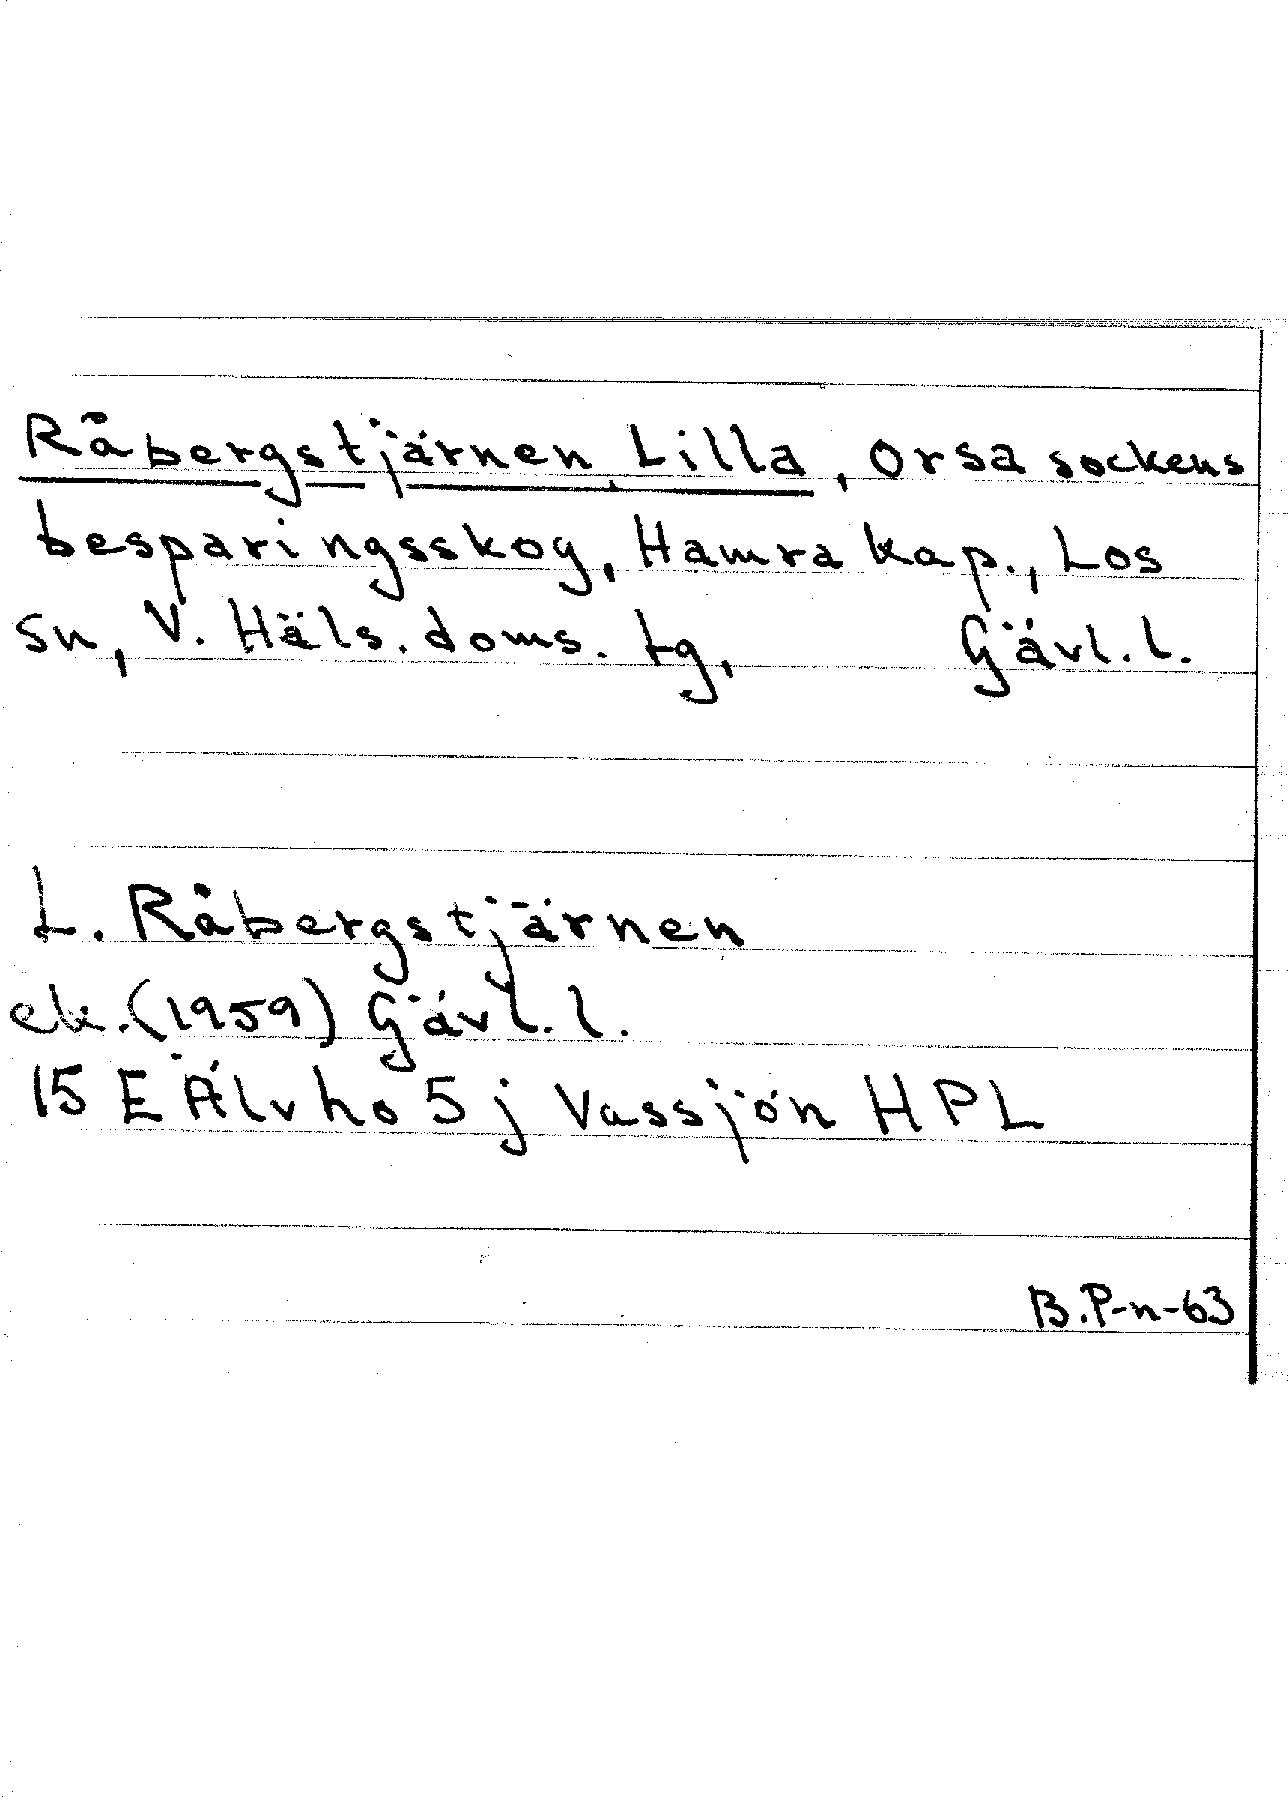 Råbergstjärnen, Lilla, Orsa sockens
besparingsskog, Hamra kap., Los
sn, V. Häls. doms. tg, Gävl. l.
L. Råbergstjärnen
ek. (1959) Gävl. l.
15 E Älvho 5 j Vassjön HPL
B.P-n-63